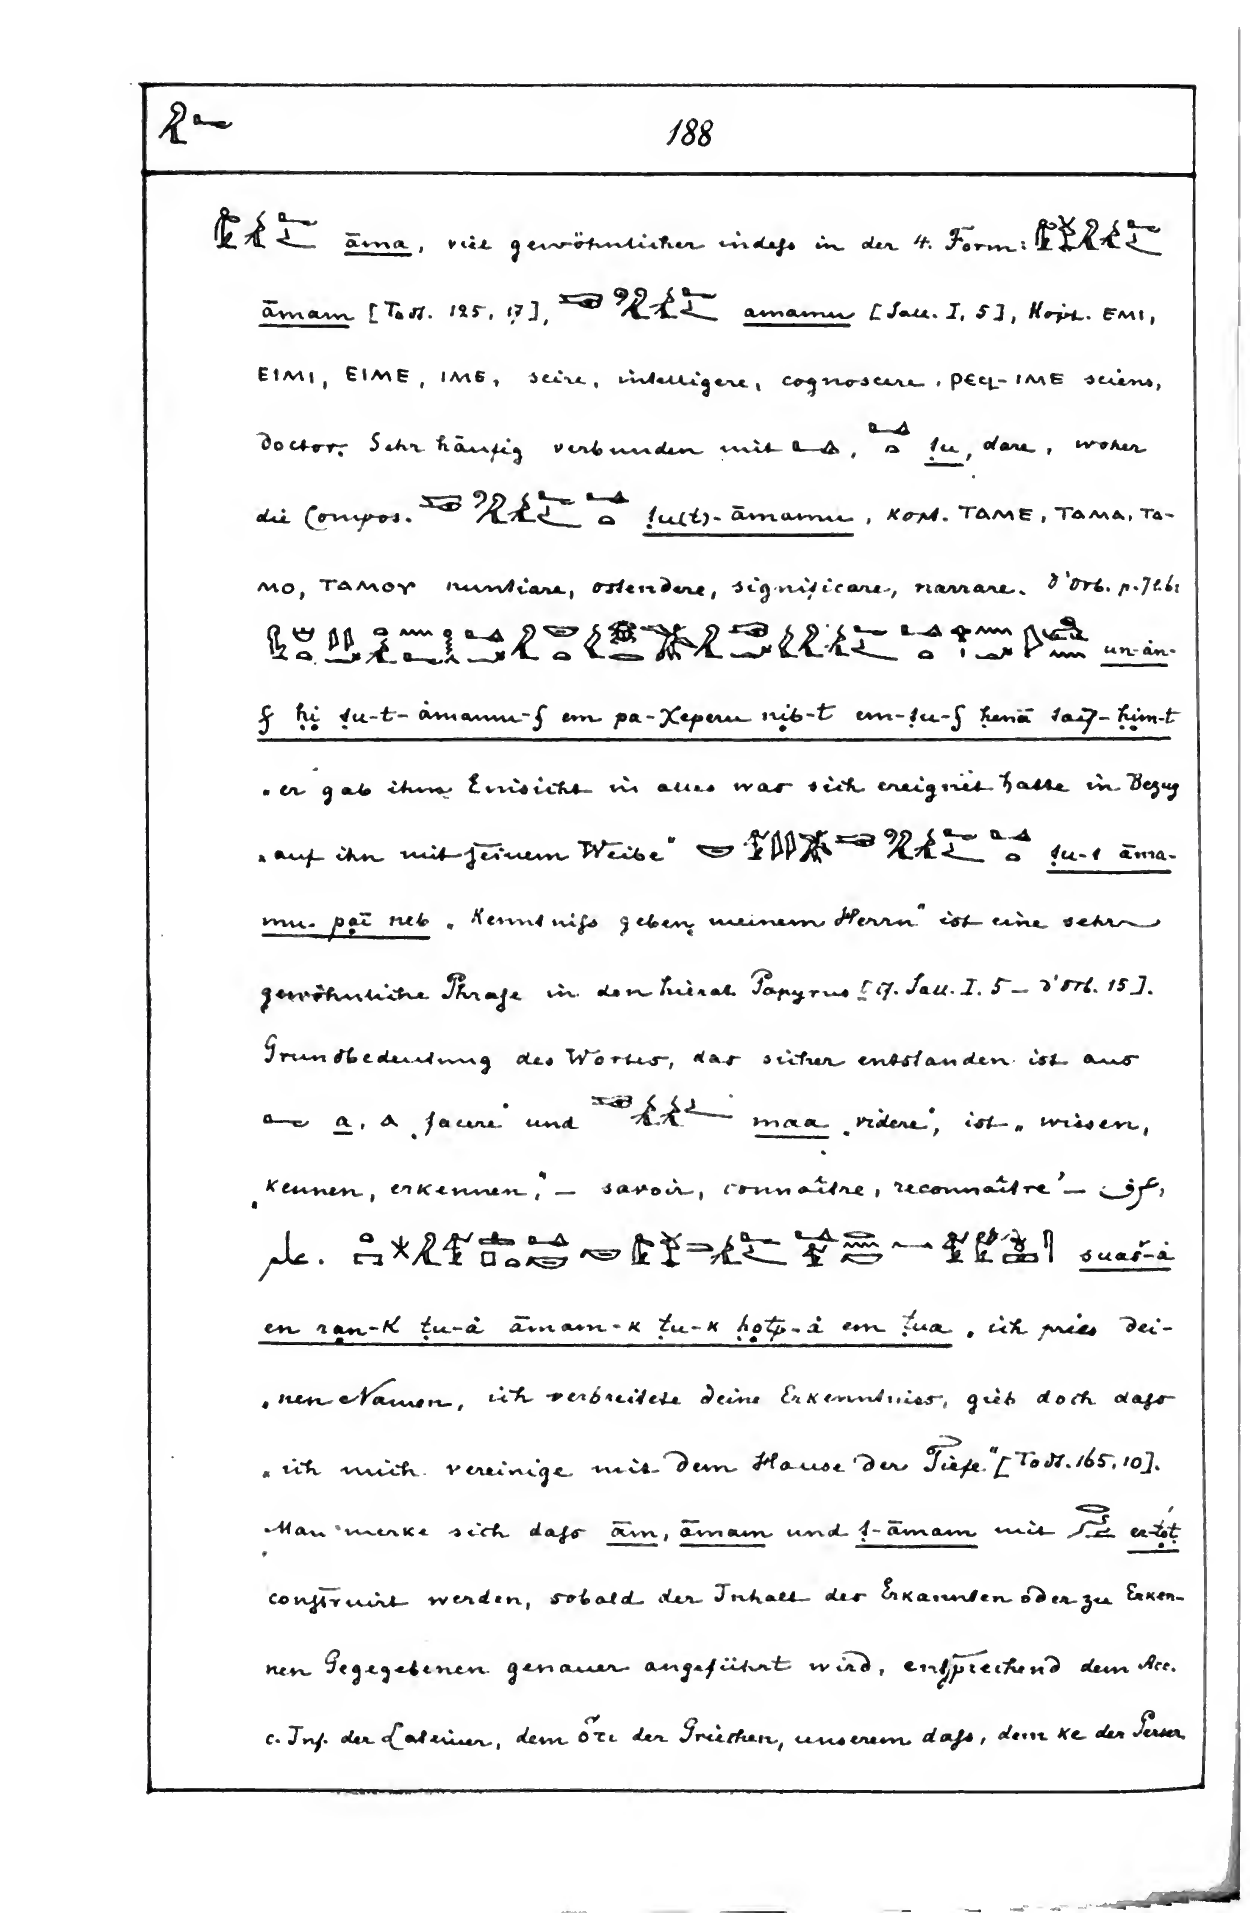 188
āma, viel gewöhnlicher indeſs in der 4. Form:
āmam [Todt. 125, 17], amamu [Sall. I, 5], Kopt. ⲈⲘⲒ,
ⲈⲒⲘⲒ, ⲈⲒⲘⲈ, ⲒⲘⲈ, scire, intelligere, cognoscere, ⲢⲈϤ-ⲒⲘⲈ sciens,
doctor. Sehr häufig verbunden mit , ṭu, dare, woher
die Compos. ṭu(t)-āmamu, Kopt. ⲦⲀⲘⲈ, ⲦⲀⲘⲀ, ⲦⲀ-
ⲘⲞ, ⲦⲀⲘⲞⲨ nuntiare, ostendere, significare, narrare. d'Orb. p.
un-ȧn-
f ḥi ṭu-t-ȧmamu-f em pa-χeperu nib-t em-ṭu-f ḥenā ḥim-t
„er gab ihm Einsicht in alles was sich ereignet hatte in Bezug
„auf ihn mit seinem Weibe“ ṭu-t āma-
mu. pai neb „Kenntniſs geben meinem Herrn“ ist eine sehr
gewöhnliche Phrase in den hierat. Papyrus [cf. Sall. I. 5 – d'Orb. 15].
Grundbedeutung des Wortes, das sicher entstanden ist aus
a, ā „facere“ und maa „videre“, ist „wissen,
„kennen, erkennen,“ – savoir, connaître, reconnaître – عرف,
علم. suaš-ȧ
en ran-k ṭu-ȧ āmam-k ṭu-k ḥotp-ȧ em ṭua „ich pries dei-
„nen Namen, ich verbreitete deine Erkenntniss, gieb doch daſs
„ich mich vereinige mit dem Hause der Tiefe“ [Todt. 165, 10].
Man merke sich daſs ām, āmam und ṭ-āmam mit er-ṭoṭ
construirt werden, sobald der Inhalt des Erkannten oder zu Erken-
nen Gegegebenen genauer angeführt wird, entsprechend dem Acc.
c. Inf. der Lateiner, dem ὅτι der Griechen, unserem daſs, dem ke der Perser